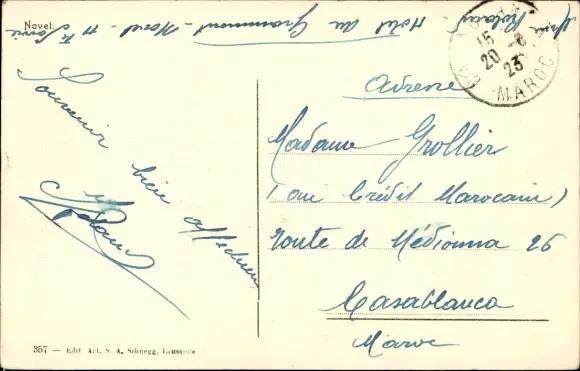 Novel.
Hotel du Grammont - Novel - Hte Savoie
Souvenir bien affectueux
15
20 - 8
23
MAROC
Adresse
Madame Grollier
(au Crédit Marocain)
route de Médionna 26
Casablanca
Maroc
357 — Edit. Art. S. A. Schnegg, Lausanne